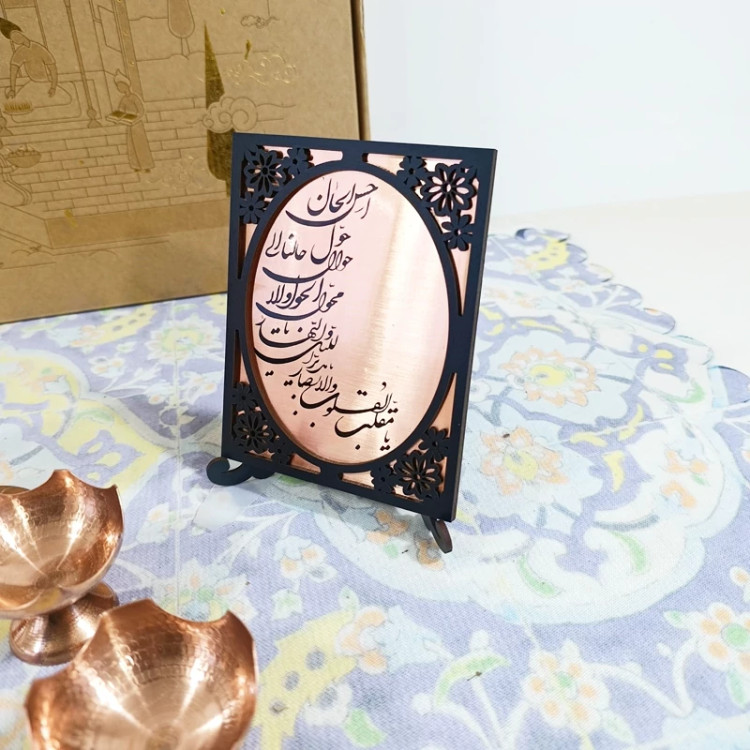 یا مقلب القلوب والابصار
یا مدبر اللیل والنهار
یا محول الحول والاحوال
حول حالنا الی
احسن الحال